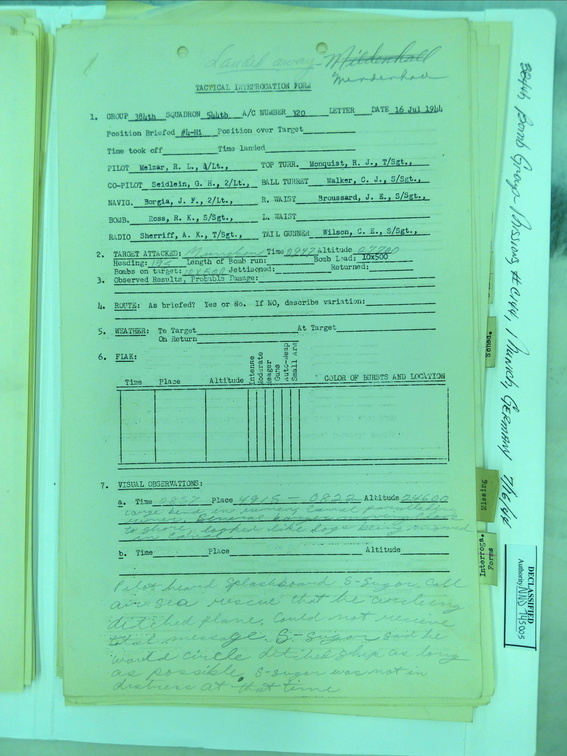 Landed away - Mildenhall
TACTICAL INTERROGATION FORM
1. GROUP 384th SQUADRON 544th A/C NUMBER 320 LETTER DATE 16 Jul 1944
Position Briefed #4-H1 Position over Target
Time took off Time landed
PILOT Melzar, R. L., 1/Lt., TOP TURR. Monquist, R. J., T/Sgt.,
CO-PILOT Seidlein, G. H., 2/Lt., BALL TURRET Walker, C. J., S/Sgt.,
NAVIG. Borgia, J. F., 2/Lt., R. WAIST Broussard, J. E., S/Sgt.,
BOMB. Ross, R. K., S/Sgt., L. WAIST
RADIO Sherriff, A. K., T/Sgt., TAIL GUNNER Wilson, C. E., S/Sgt.,
2. TARGET ATTACKED: Time 0947 Altitude 27700
Heading: Length of Bomb run: Bomb Load: 10x500
Bombs on target: 10x500 Jettisoned: Returned:
3. Observed Results, Probable Damage:
4. ROUTE: As briefed? Yes or No. If NO, describe variation:
5. WEATHER: To Target At Target
On Return
6. FLAK:
Time Place Altitude Intense Moderate Meager Guns Auto-Weap Small Arm COLOR OF BURSTS AND LOCATION
7. VISUAL OBSERVATIONS:
a. Time 0837 Place 4915 - 0822 Altitude 24600
large bend in
to shore
b. Time Place Altitude
Pilot heard Splashboard S-Sugar call
air sea rescue that he circling
ditched plane. Could not receive
that message. S-Sugar said he
would circle ditched ship as long
as possible. S-Sugar was not in
distress at that time
384th Bomb Group - Missions #164, Munich, Germany 7/16/44
Sched.
Missing
Interroga.
Forms
DECLASSIFIED
Authority NND 745005